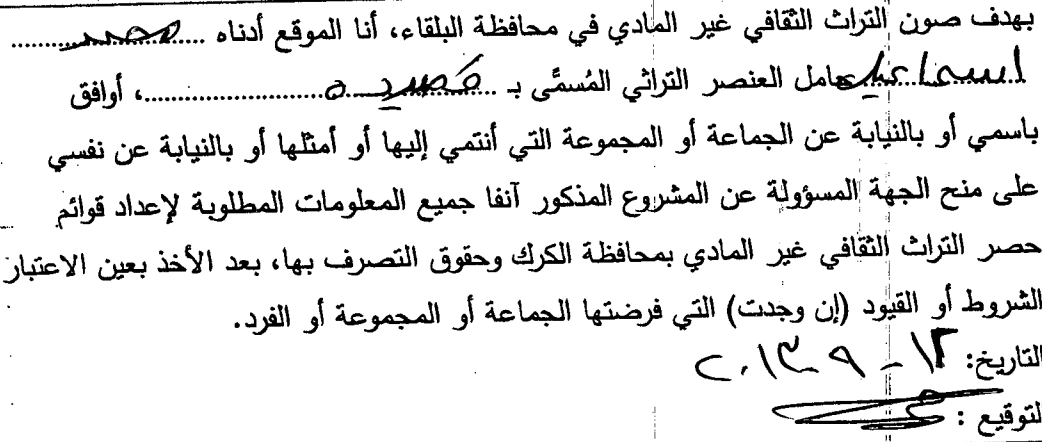 بهدف صون التراث الثقافي غير المادي في محافظة البلقاء، أنا الموقع أدناه ......محمد......
اسماعيل حامل العنصر التراثي المُسمَّى بـ ............................، أوافق
باسمي أو بالنيابة عن الجماعة أو المجموعة التي أنتمي إليها أو أمثلها أو بالنيابة عن نفسي
على منح الجهة المسؤولة عن المشروع المذكور آنفا جميع المعلومات المطلوبة لإعداد قوائم
حصر التراث الثقافي غير المادي بمحافظة الكرك وحقوق التصرف بها، بعد الأخذ بعين الاعتبار
الشروط أو القيود (إن وجدت) التي فرضتها الجماعة أو المجموعة أو الفرد.
التاريخ: ١٢ - ٩ - ٢٠١٣
لتوقيع :